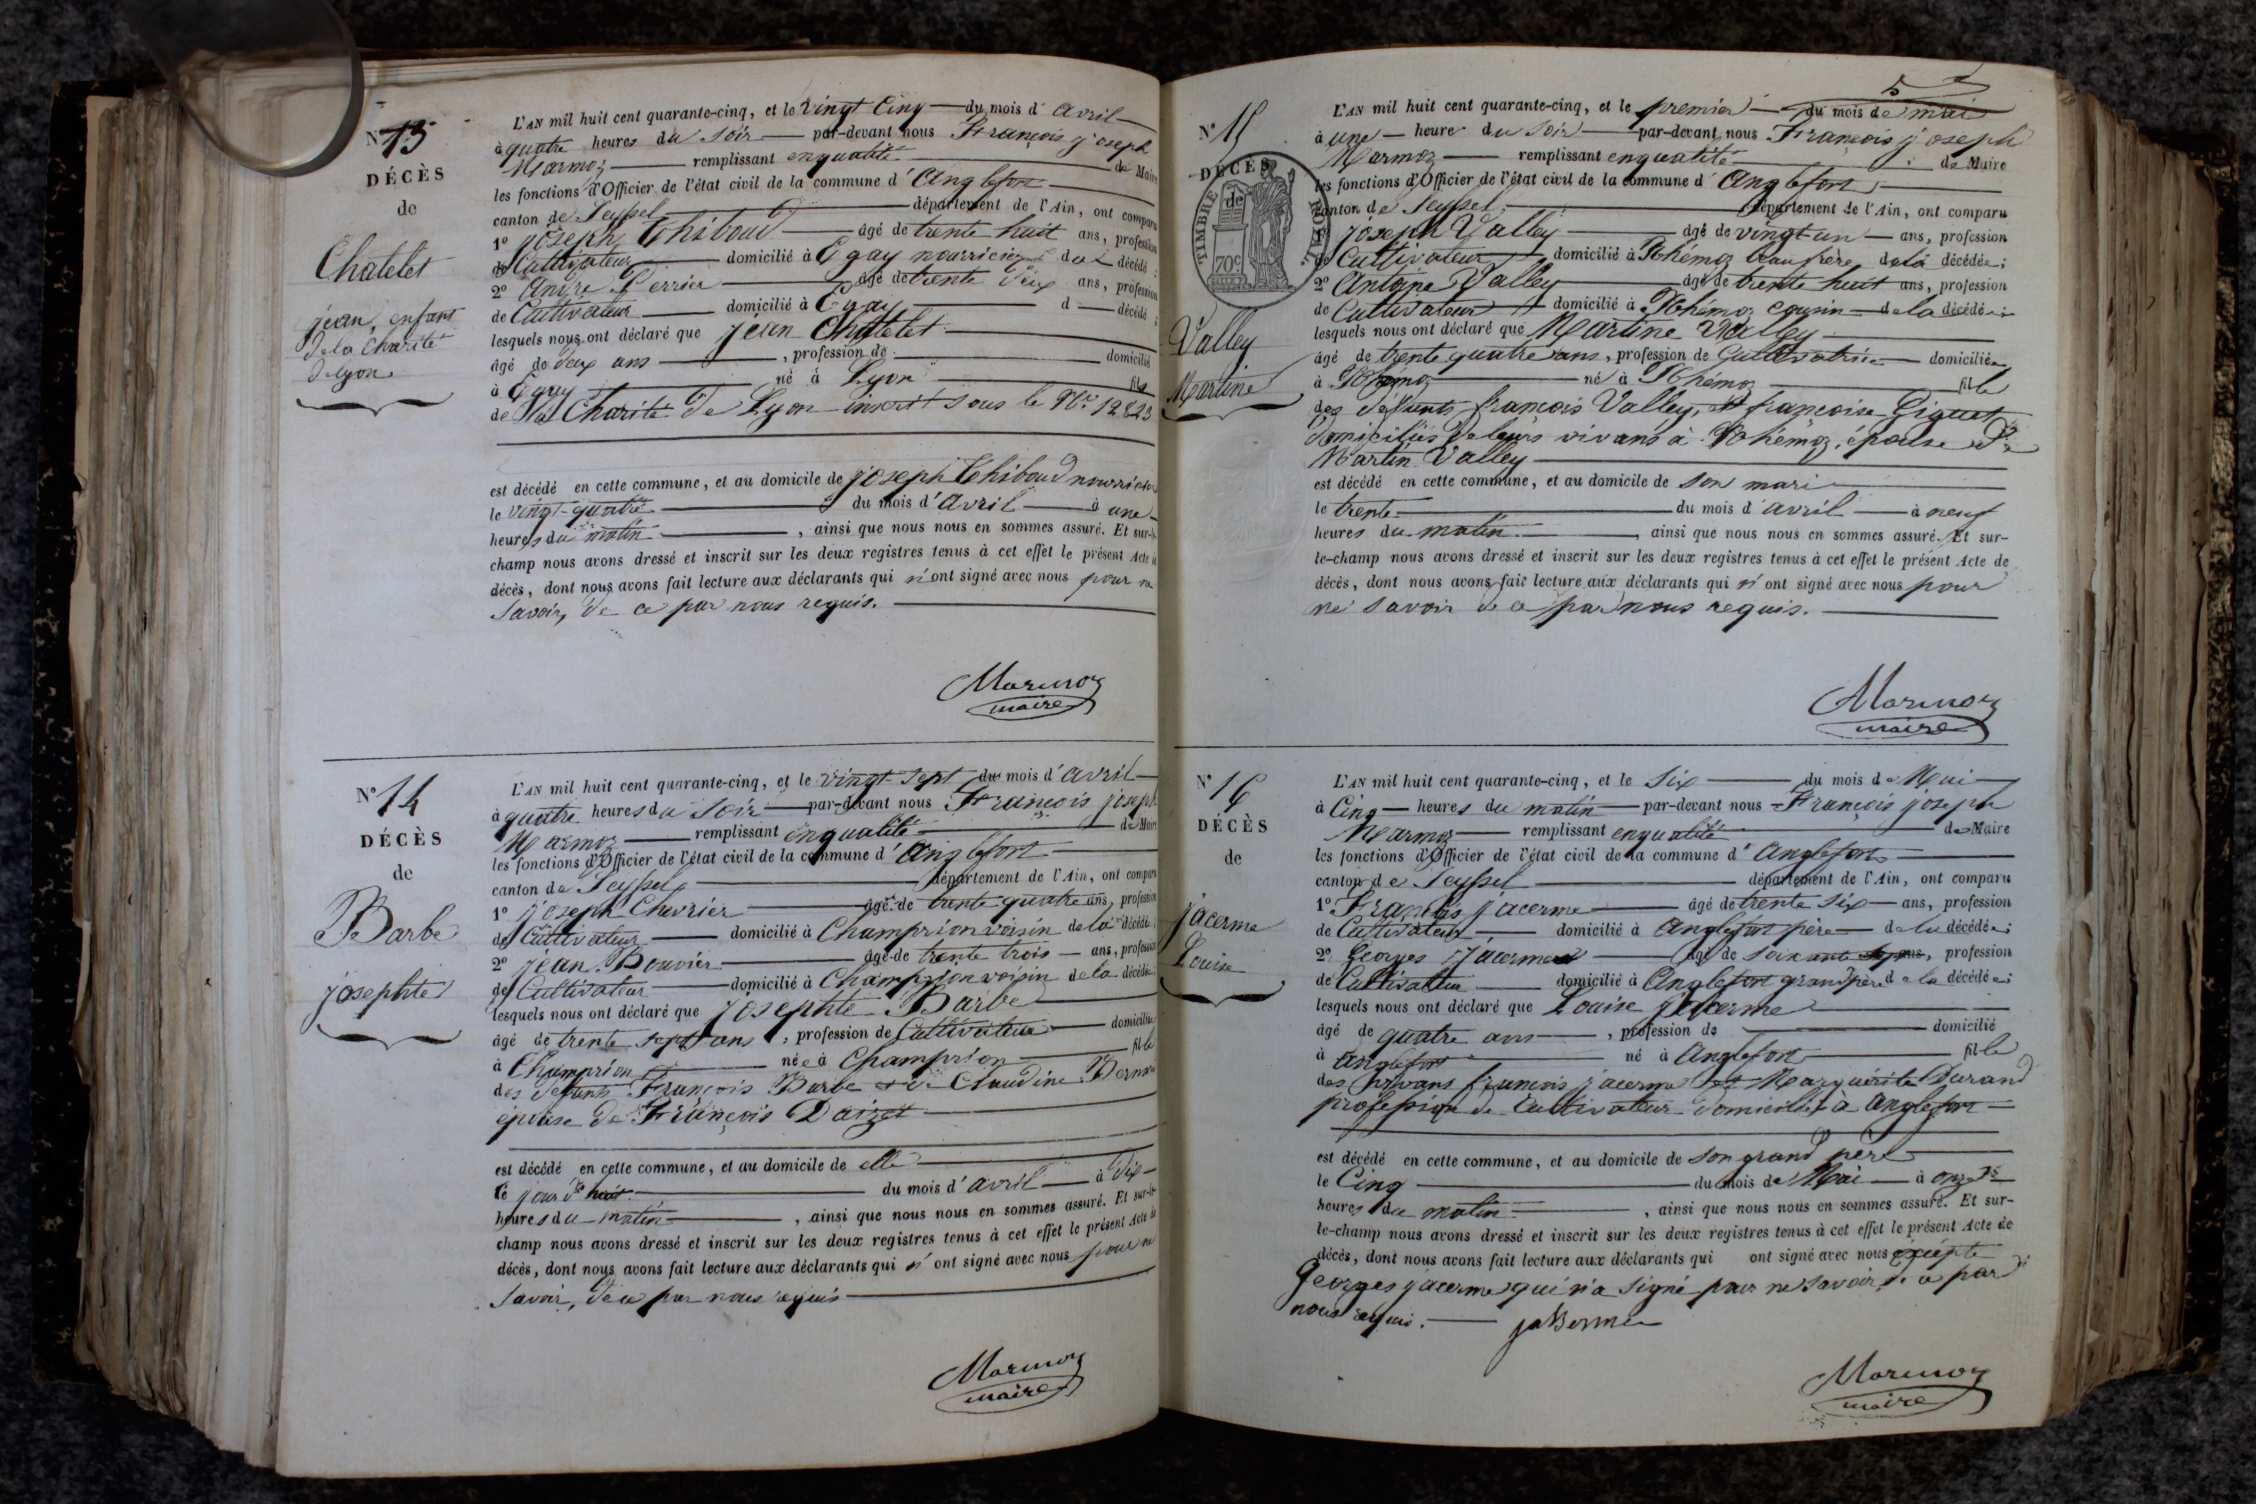 N° 13
DÉCÈS
de
Chatelet
jean, enfant
de la Charité
de lyon
L'AN mil huit cent quarante-cinq, et le vingt Cinq du mois d'avril
à quatre heures du soir par-devant nous François joseph
Marmoz remplissant en qualité de Maire
les fonctions d'Officier de l'état civil de la commune d'Anglefort
canton de Seyssel département de l'Ain, ont comparu
1° joseph Thiboud âgé de trente huit ans, profession
de Cultivateur domicilié à Egay nourricier du décédé ;
2° André Perrier âgé de trente six ans, profession
de Cultivateur domicilié à Egay d décédé ;
lesquels nous ont déclaré que jean Chatelet
âgé de deux ans , profession de domicilié
à Egay né à Lyon fils
de la Charité de Lyon inscrit sous le N°
est décédé en cette commune, et au domicile de joseph Thiboud nourricier
le vingt-quatre du mois d'avril à une
heures du matin , ainsi que nous nous en sommes assuré. Et sur-le-
champ nous avons dressé et inscrit sur les deux registres tenus à cet effet le présent Acte de
décès, dont nous avons fait lecture aux déclarants qui n'ont signé avec nous pour ne
savoir, de ce par nous requis.
Marmoz
maire
N° 14
DÉCÈS
de
Barbe
josephte
L'AN mil huit cent quarante-cinq, et le vingt-sept du mois d'avril
à quatre heures du soir par-devant nous François joseph
Marmoz remplissant en qualité de Maire
les fonctions d'Officier de l'état civil de la commune d'Anglefort
canton de Seyssel département de l'Ain, ont comparu
1° joseph Chevrier âgé de trente quatre ans, profession
de Cultivateur domicilié à Champrion voisin de la décédée
2° jean Bouvier âgé de trente trois ans, profession
de Cultivateur domicilié à Champrion voisin de la décédée
lesquels nous ont déclaré que josephte Barbe
âgé de trente sept ans , profession de Cultivateur domiciliée
à Champrion née à Champrion fille
des défunts François Barbe et de Claudine
épouse de François Daizet
est décédé en cette commune, et au domicile de elle
le jour d'hui du mois d'avril à dix
heures du matin , ainsi que nous nous en sommes assuré. Et sur-le-
champ nous avons dressé et inscrit sur les deux registres tenus à cet effet le présent Acte de
décès, dont nous avons fait lecture aux déclarants qui n'ont signé avec nous pour ne
savoir, de ce par nous requis
Marmoz
maire
5
N° 15
DÉCÈS
de
TIMBRE ROYAL
70c
Valley
Martine
L'AN mil huit cent quarante-cinq, et le premier du mois de mai
à une heure du soir par-devant nous François joseph
Marmoz remplissant en qualité de Maire
les fonctions d'Officier de l'état civil de la commune d'Anglefort
canton de Seyssel département de l'Ain, ont comparu
1° joseph Valley âgé de vingt-un ans, profession
de Cultivateur domicilié à Rhémoz beaufrère de la décédée ;
2° Antoine Valley âgé de trente huit ans, profession
de Cultivateur domicilié à Rhémoz cousin de la décédée ;
lesquels nous ont déclaré que Martine Valley
âgé de trente quatre ans, profession de Cultivatrice domiciliée
à Rhémoz né à Rhémoz fille
des défunts françois Valley, et françoise Giguet
domiciliés de leurs vivans à Rhémoz, épouse de
Martin Valley
est décédé en cette commune, et au domicile de son mari
le trente du mois d'avril à neuf
heures du matin , ainsi que nous nous en sommes assuré. Et sur-
le-champ nous avons dressé et inscrit sur les deux registres tenus à cet effet le présent Acte de
décès, dont nous avons fait lecture aux déclarants qui n'ont signé avec nous pour
ne savoir de ce par nous requis.
Marmoz
maire
N° 16
DÉCÈS
de
jacerme
Louise
L'AN mil huit cent quarante-cinq, et le six du mois de Mai
à Cinq heures du matin par-devant nous François joseph
Marmoz remplissant en qualité de Maire
les fonctions d'Officier de l'état civil de la commune d'Anglefort
canton de Seyssel département de l'Ain, ont comparu
1° François jacerme âgé de trente six ans, profession
de Cultivateur domicilié à Anglefort père de la décédée ;
2° Georges jacerme âgé de soixante ans, profession
de Cultivateur domicilié à Anglefort grandpère de la décédée ;
lesquels nous ont déclaré que Louise jacerme
âgé de quatre ans , profession de domicilié
à Anglefort né à Anglefort fille
des vivans françois jacerme et Marguerite Durand
profession de Cultivateur domiciliés à Anglefort
est décédé en cette commune, et au domicile de son grand père
le Cinq du mois de Mai à onze
heures du matin , ainsi que nous nous en sommes assuré. Et sur-
le-champ nous avons dressé et inscrit sur les deux registres tenus à cet effet le présent Acte de
décès, dont nous avons fait lecture aux déclarants qui ont signé avec nous excépté
Georges jacerme qui n'a signé pour ne savoir de ce par
nous requis. jaserme
Marmoz
maire